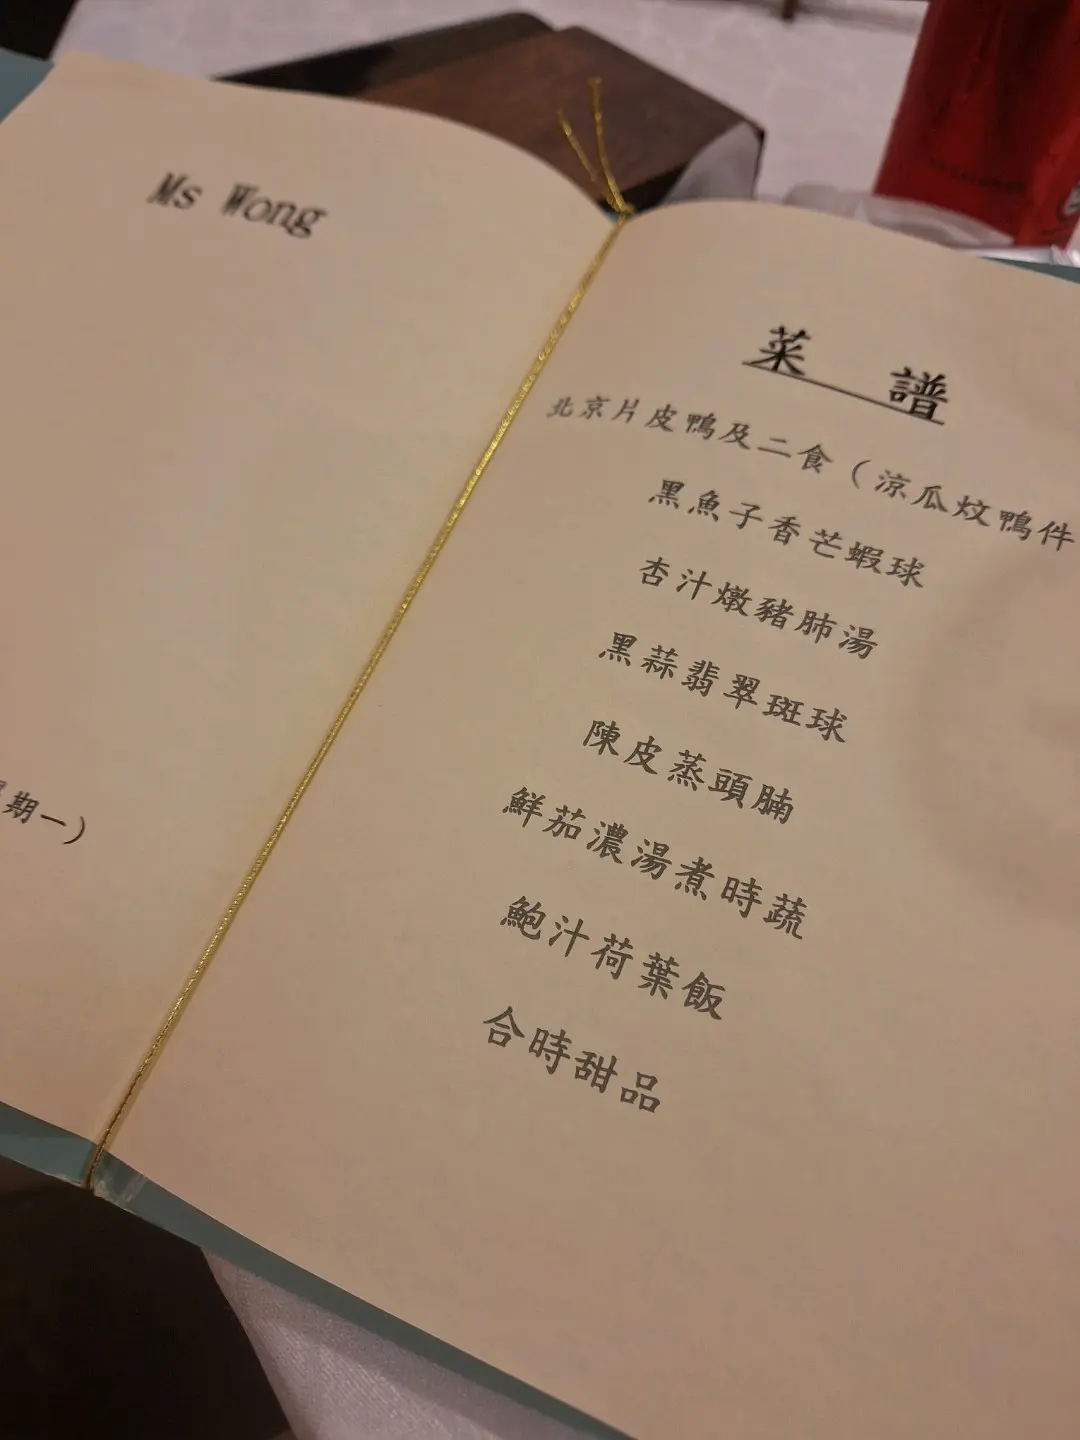 Ms Wong
期一）
菜 譜
北京片皮鴨及二食（涼瓜炆鴨件
黑魚子香芒蝦球
杏汁燉豬肺湯
黑蒜翡翠斑球
陳皮蒸頭腩
鮮茄濃湯煮時蔬
鮑汁荷葉飯
合時甜品